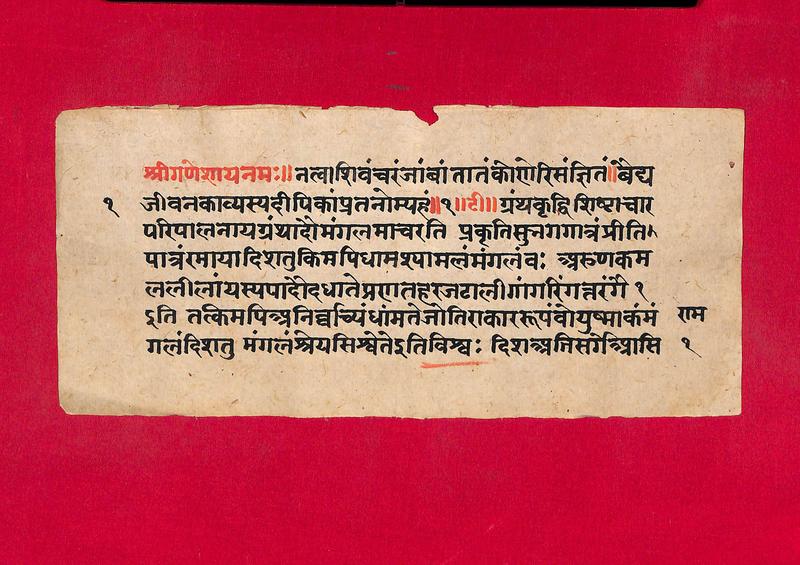 श्रीगणेशायनमः॥ नत्वाशिवंचरंजांबांतातंकोणेरिसंज्ञितं॥वैद्य
१ जीवनकाव्यस्यदीपिकांप्रतनोम्यहं॥१॥टी॥ग्रंथकृद्विशिष्टाचार
परिपालनायग्रंथादौमंगलमाचरति प्रकृतिसुनगगात्रंप्रीति।
पात्रंरमायादिशतुकिमपिधामश्यामलंमंगलंवः अरुणकम
ललीलांयस्यपादौदधातेप्रणतहरजटालीगांगरिंगत्तरंगैः १
ऽति तत्किमपिअनिर्वाच्यंधांमतेजोतिराकाररूपंवोयुष्माकंमं राम
गलंदिशतु मंगलंश्रेयसिश्वेतेऽतिविश्वः दिशअतिसर्गेत्प्रासि १